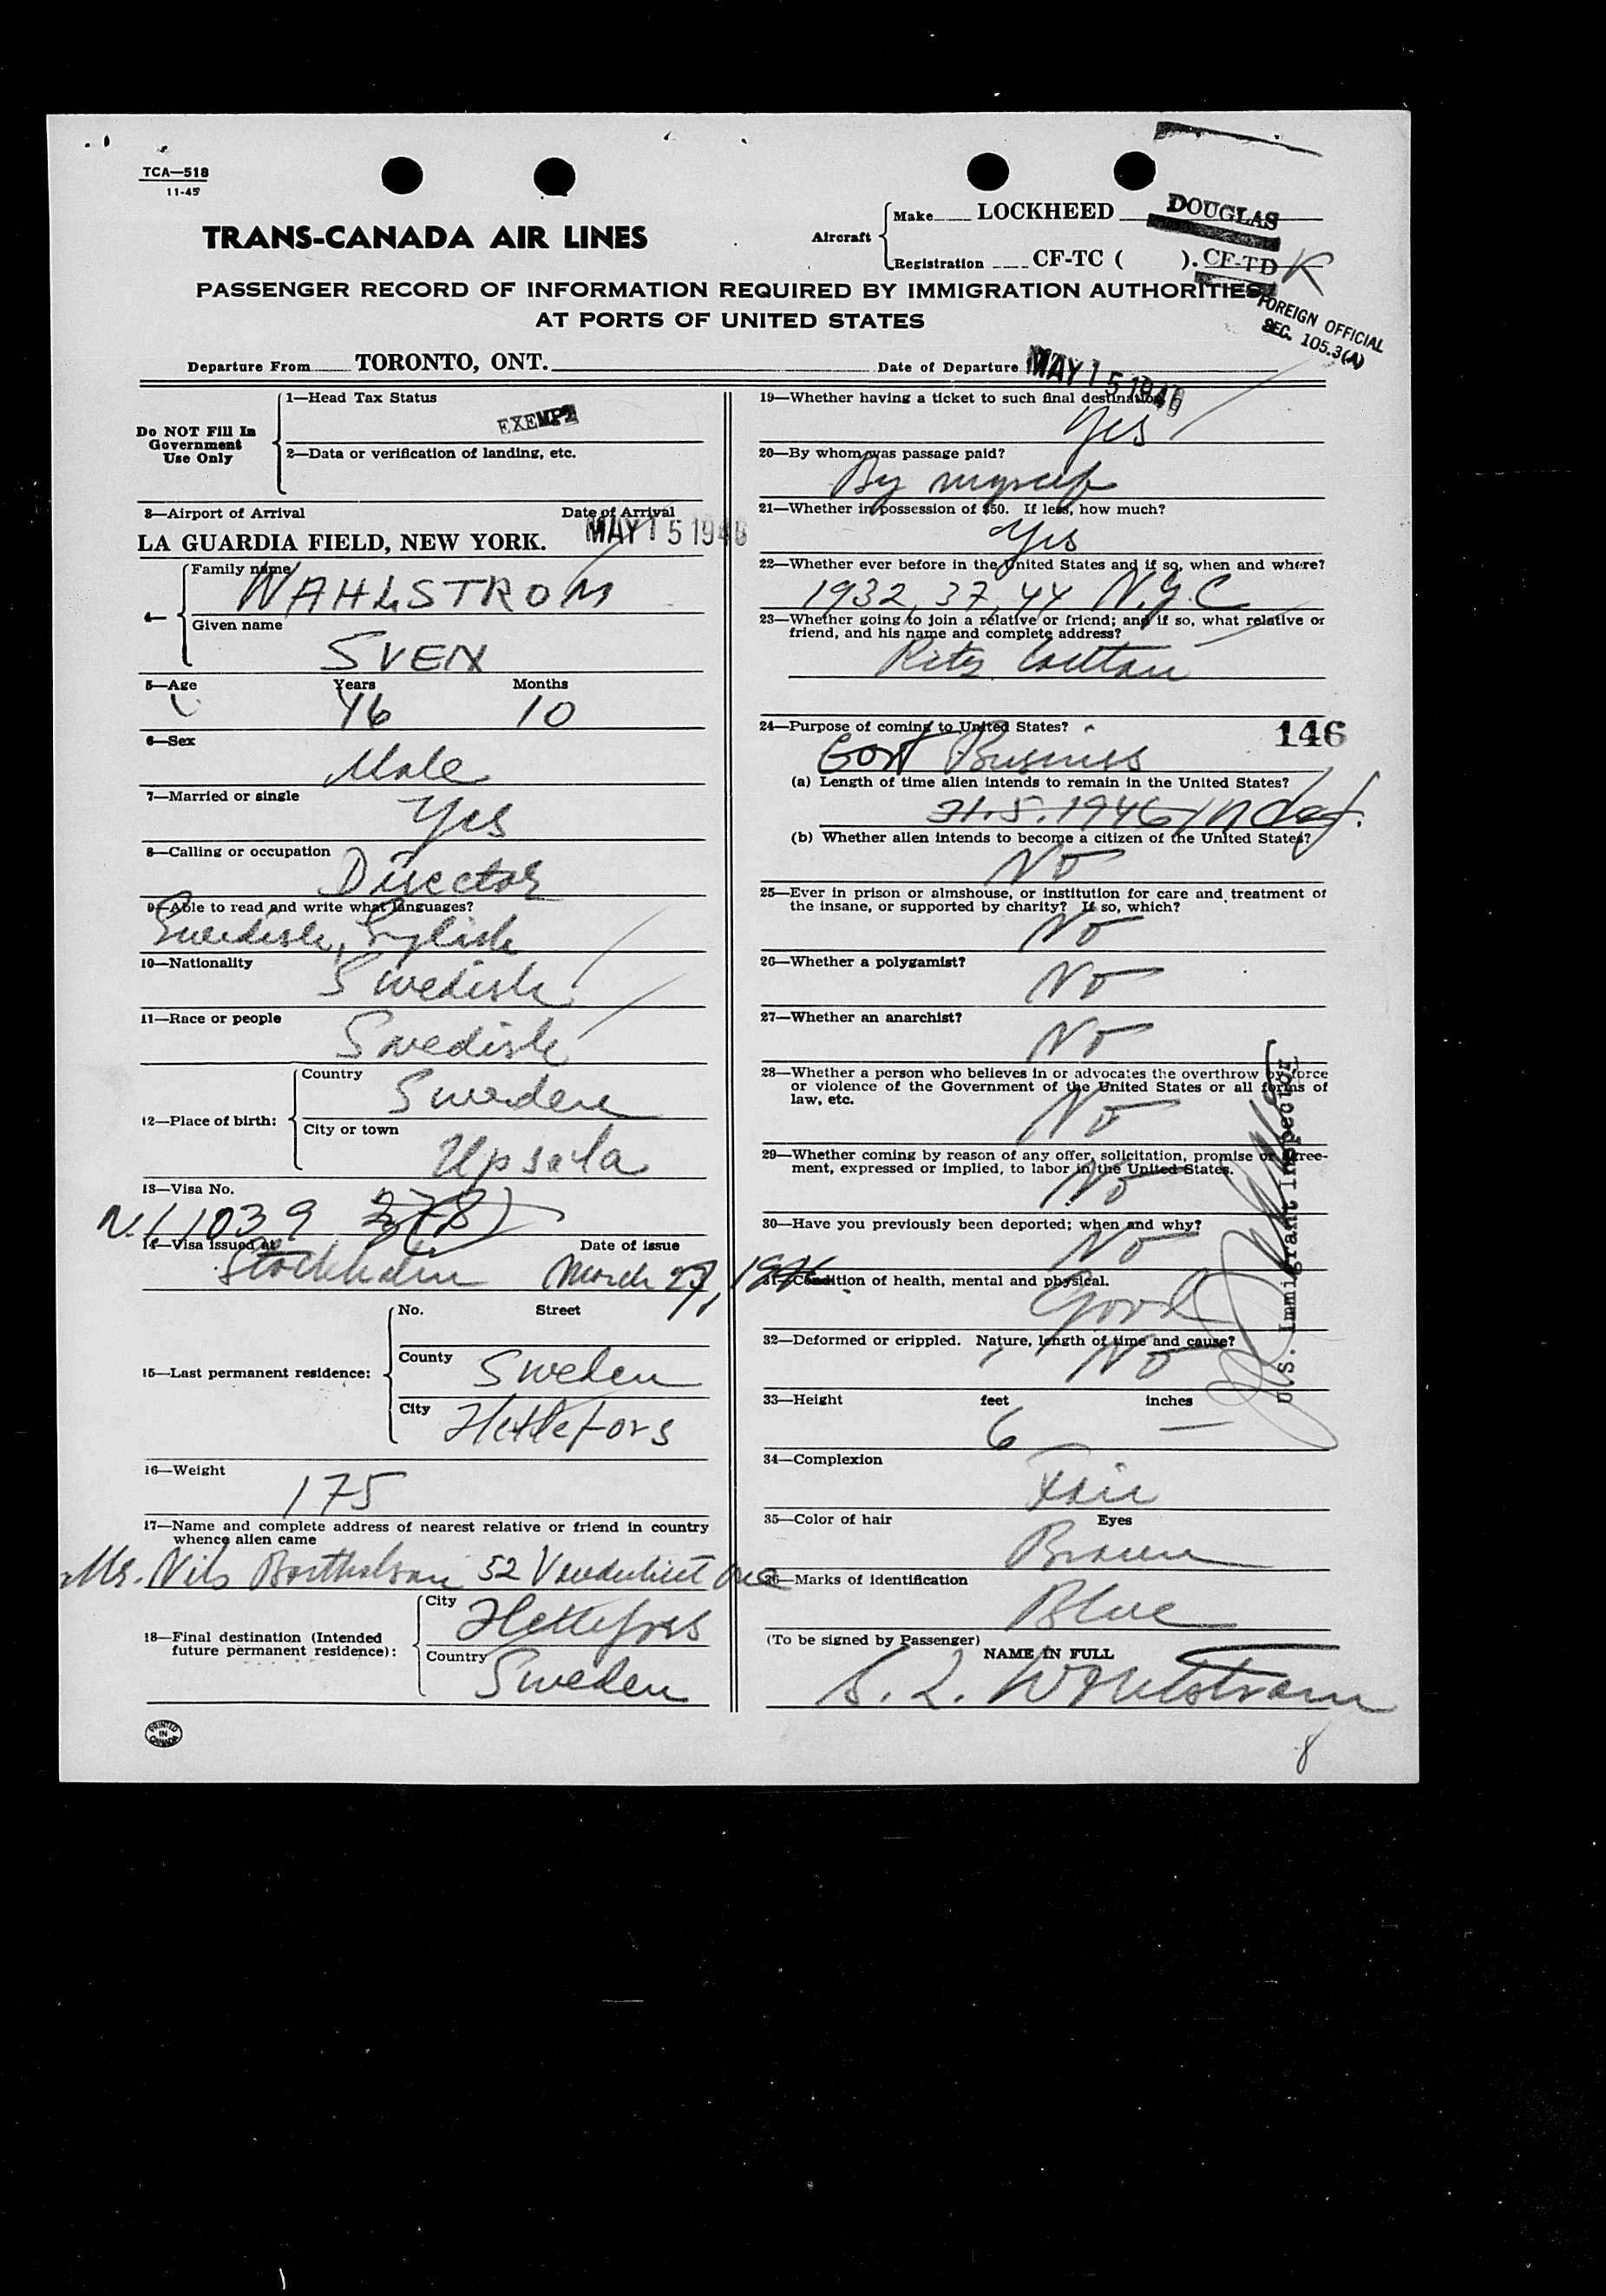 TCA—518
11-45
TRANS-CANADA AIR LINES
Aircraft
Make LOCKHEED DOUGLAS
Registration CF-TC ( ). CF-TD K
PASSENGER RECORD OF INFORMATION REQUIRED BY IMMIGRATION AUTHORITIES
AT PORTS OF UNITED STATES
FOREIGN OFFICIAL
SEC. 105.3(A)
Departure From TORONTO, ONT.
Date of Departure MAY 15 1946
Do NOT Fill In
Government
Use Only
1—Head Tax Status
EXEMPT
2—Data or verification of landing, etc.
3—Airport of Arrival Date of Arrival
LA GUARDIA FIELD, NEW YORK. MAY 15 1946
4—
Family name
WAHLSTROM
Given name
SVEN
5—Age Years Months
46 10
6—Sex
Male
7—Married or single
Yes
8—Calling or occupation
Director
9—Able to read and write what languages?
Swedish, English
10—Nationality
Swedish
11—Race or people
Swedish
12—Place of birth:
Country
Sweden
City or town
Upsala
13—Visa No.
N. 11039 3(8)
14—Visa issued at Date of issue
Stockholm March 27, 1946
15—Last permanent residence:
No. Street
County
Sweden
City
Hellefors
16—Weight
175
17—Name and complete address of nearest relative or friend in country
whence alien came
Mr. Nils 52 Vanderbilt Ave
18—Final destination (Intended
future permanent residence):
City
Hellefors
Country
Sweden
PRINTED
IN
CANADA
19—Whether having a ticket to such final destination
Yes
20—By whom was passage paid?
By myself
21—Whether in possession of $50. If less, how much?
Yes
22—Whether ever before in the United States and if so, when and where?
1932, 37, 44 N.Y.C
23—Whether going to join a relative or friend; and if so, what relative or
friend, and his name and complete address?
Ritz Carlton
24—Purpose of coming to United States?
146
Govt Business
(a) Length of time alien intends to remain in the United States?
31.5.1946 indef.
(b) Whether alien intends to become a citizen of the United States?
No
25—Ever in prison or almshouse, or institution for care and treatment of
the insane, or supported by charity? If so, which?
No
26—Whether a polygamist?
No
27—Whether an anarchist?
No
28—Whether a person who believes in or advocates the overthrow by force
or violence of the Government of the United States or all forms of
law, etc.
No
29—Whether coming by reason of any offer, solicitation, promise or agree-
ment, expressed or implied, to labor in the United States.
No
30—Have you previously been deported; when and why?
No
31—Condition of health, mental and physical.
Good
32—Deformed or crippled. Nature, length of time and cause?
No
33—Height feet inches
6 —
34—Complexion
Fair
35—Color of hair Eyes
Brown
36—Marks of identification
Blue
(To be signed by Passenger)
NAME IN FULL
S. L. Wahlstrom
8
U.S. Immigrant Inspector